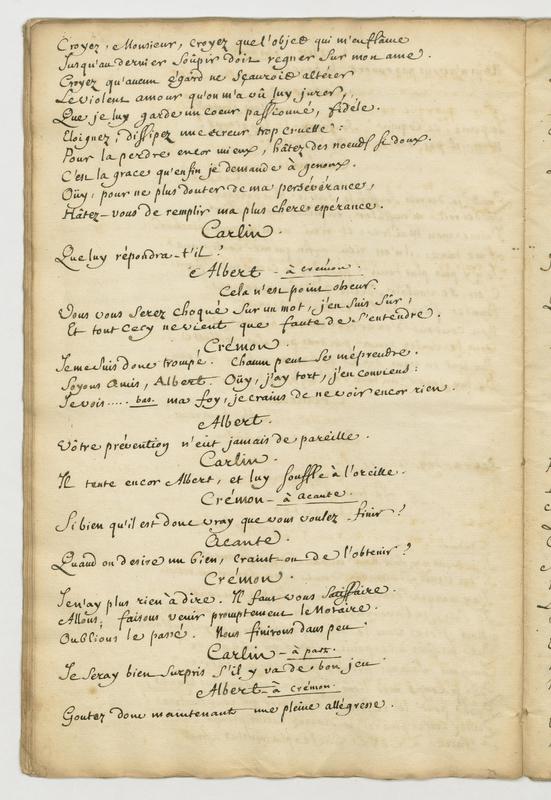 Croyez, Monsieur, Croyez que l'objet qui m'enflâme
Jusqu'au dernier Soûpir doit regner Sur mon ame.
Croyez qu'aucun égard ne Sçauroit alterer
Le violent amour qu'on m'a vû luy jurer,
Que je luy garde un coeur passionné, fidéle.
Eloignez, dissipez une erreur trop cruelle:
Pour la perdre encor mieux, hâtez des noeuds si doux.
C'est la grace qu'enfin je demande à genoux.
Oüy, pour ne plus douter de ma persévérance,
Hâtez-vous de remplir ma plus chere espérance.
Carlin.
Que luy répondra-t'il?
Albert - à crémon.
Cela n'est point obscur.
Vous vous Serez choqué Sur un mot, j'en Suis Sûr;
Et tout Cecy ne vient que faute de S'entendre.
Crémon.
Je me suis donc trompé. Chacun peut Se méprendre.
Soyons Amis, Albert. Oüy, j'ay tort, j'en conviens:
Je vois..... bas. ma foy, je crains de ne voir encor rien.
Albert.
Vôtre prévention n'eut jamais de pareille.
Carlin.
Il tente encor Albert, et luy souffle à l'oreille.
Crémon - à Acante.
Si bien qu'il est donc vray que vous voulez finir?
Acante.
Quand on desire un bien, craint-on de l'obtenir?
Crémon.
Je n'ay plus rien à dire. Il faut vous Satisfaire.
Allons, faisons venir promptement le Notaire.
Oublions le passé. Nous finirons dans peu.
Carlin - à part.
Je Seray bien Surpris S'il y va de bon jeu.
Albert - à crémon.
Goutez donc maintenant une pleine allégresse.